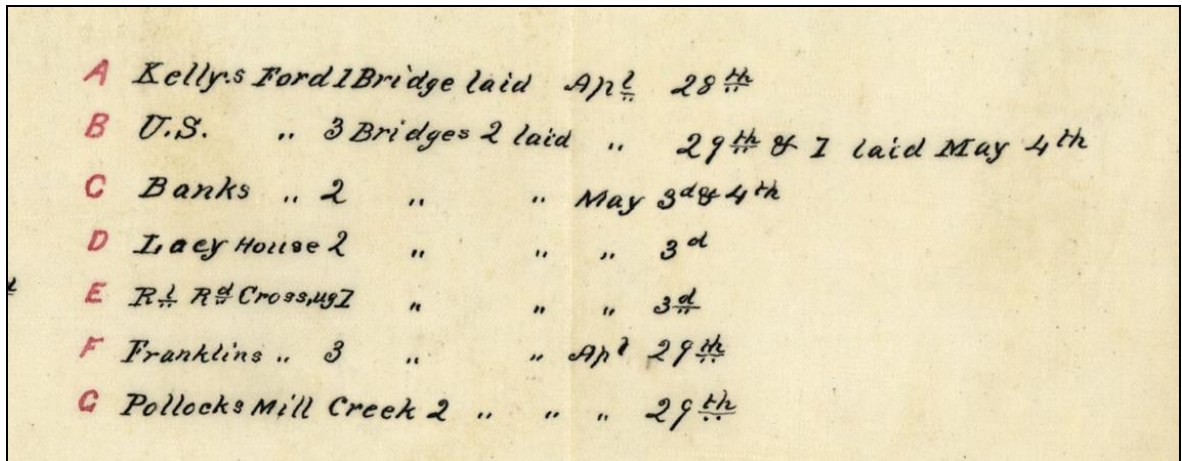 A Kelly's Ford 1 Bridge laid Apl 28th
B U.S. " 3 Bridges 2 laid " 29th & 1 laid May 4th
C Banks " 2 " " May 3d & 4th
D Lacy House 2 " " " 3d
E Rl Rd Crossing 1 " " " 3d
F Franklins " 3 " " Apl 29th
G Pollocks Mill Creek 2 " " " 29th